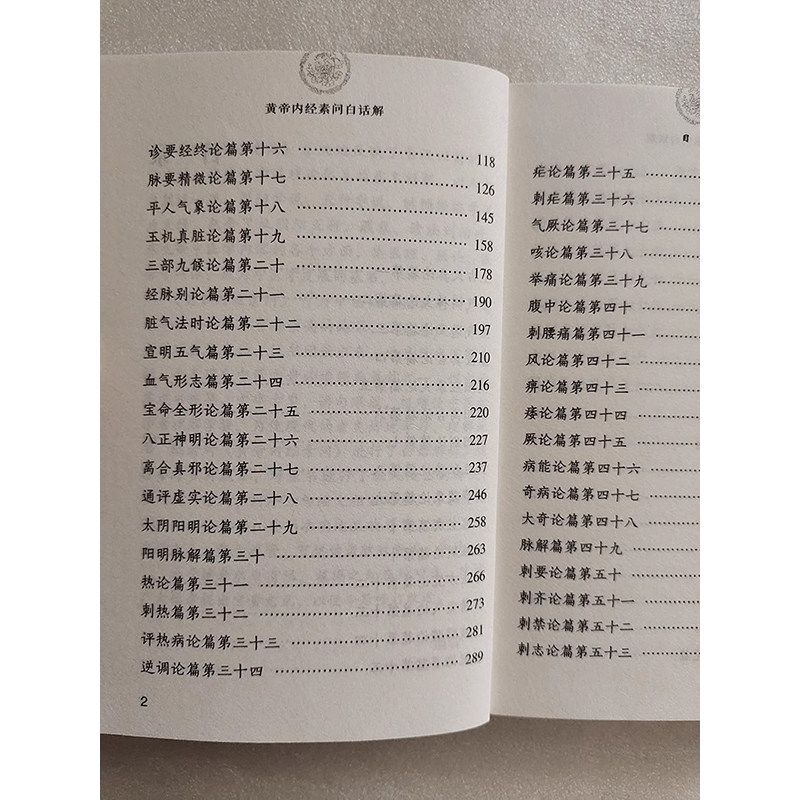 黄帝内经素问白话解
诊要经终论篇第十六 ······ 118
脉要精微论篇第十七 ······ 126
平人气象论篇第十八 ······ 145
玉机真脏论篇第十九 ······ 158
三部九候论篇第二十 ······ 178
经脉别论篇第二十一 ······ 190
脏气法时论篇第二十二 ······ 197
宣明五气篇第二十三 ······ 210
血气形志篇第二十四 ······ 216
宝命全形论篇第二十五 ······ 220
八正神明论篇第二十六 ······ 227
离合真邪论篇第二十七 ······ 237
通评虚实论篇第二十八 ······ 246
太阴阳明论篇第二十九 ······ 258
阳明脉解篇第三十 ······ 263
热论篇第三十一 ······ 266
刺热篇第三十二 ······ 273
评热病论篇第三十三 ······ 281
逆调论篇第三十四 ······ 289
2
目
疟论篇第三十五 ······
刺疟篇第三十六 ······
气厥论篇第三十七 ······
咳论篇第三十八 ······
举痛论篇第三十九 ······
腹中论篇第四十 ······
刺腰痛篇第四十一 ······
风论篇第四十二 ······
痹论篇第四十三 ······
痿论篇第四十四 ······
厥论篇第四十五 ······
病能论篇第四十六 ······
奇病论篇第四十七 ······
大奇论篇第四十八 ······
脉解篇第四十九 ······
刺要论篇第五十 ······
刺齐论篇第五十一 ······
刺禁论篇第五十二 ······
刺志论篇第五十三 ······